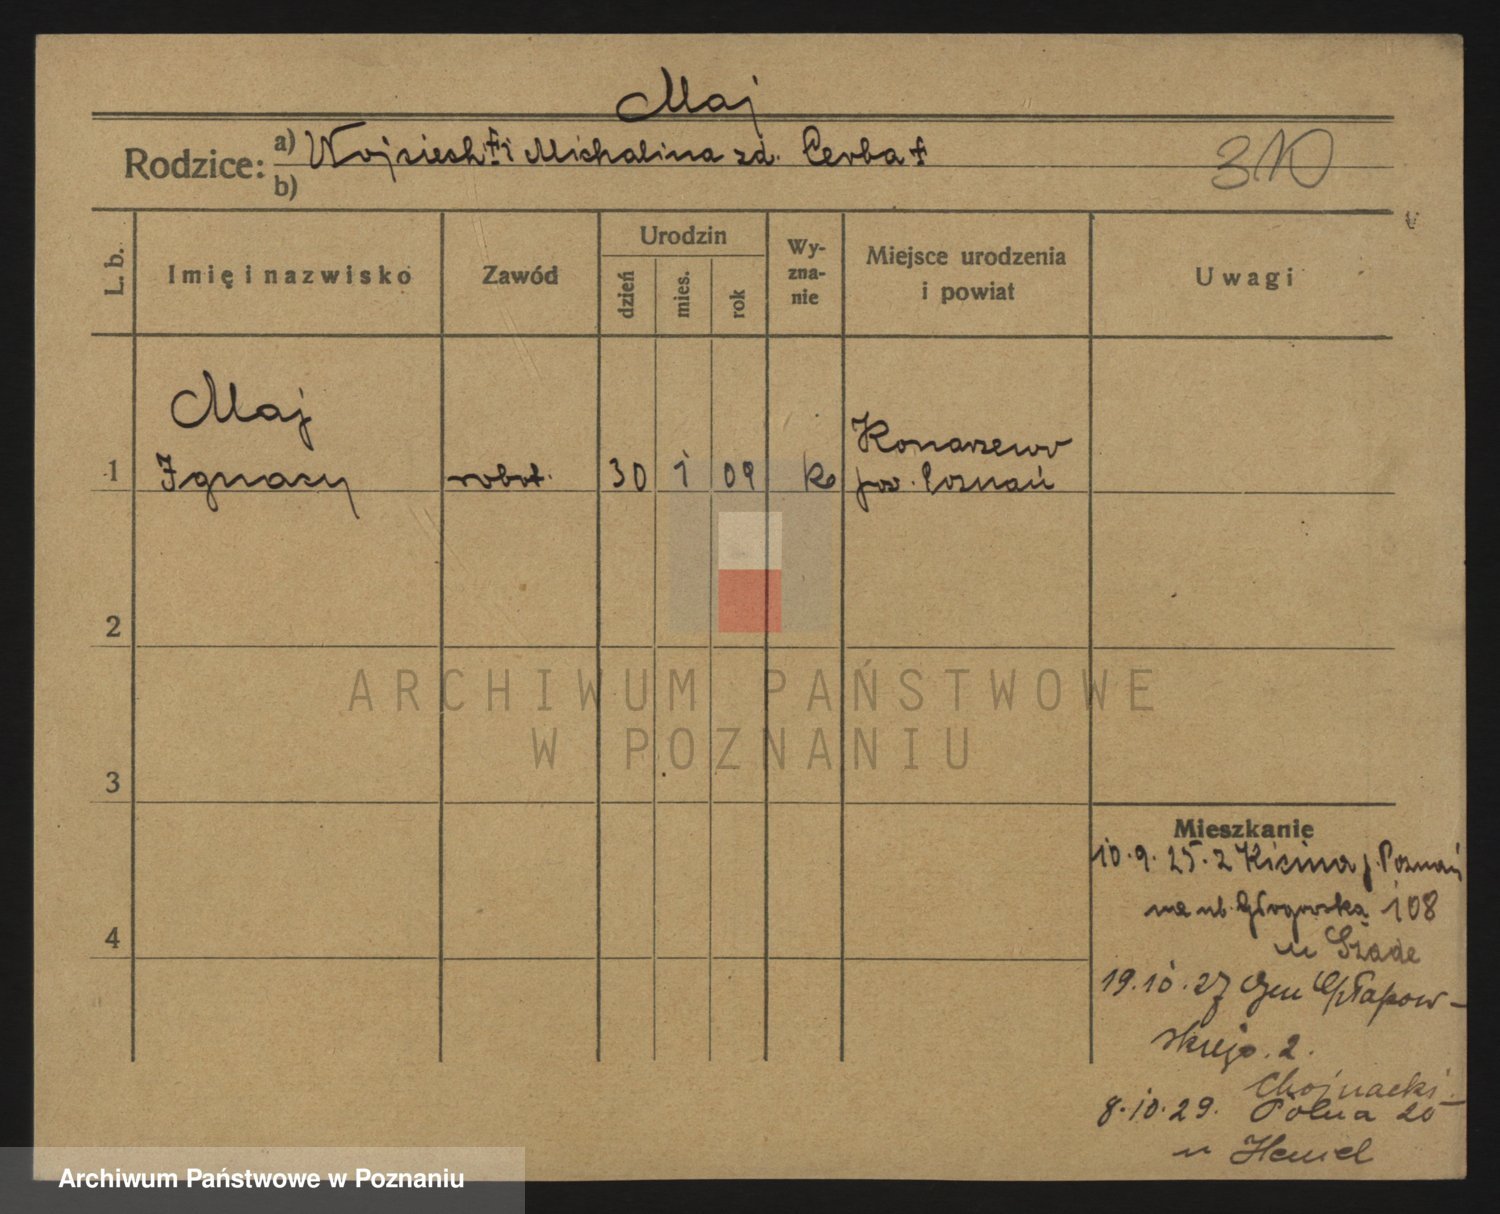 Maj
Rodzice: a) Wojciech † i Michalina zd. Cerba †
b)
310
L. b.
Imię i nazwisko
Zawód
Urodzin
dzień
mies.
rok
Wy-
zna-
nie
Miejsce urodzenia
i powiat
Uwagi
Maj
1 Ignacy robot. 30 1 09 k
Konarzewo
pow. Poznań
2
3
4
ARCHIWUM PAŃSTWOWE
W POZNANIU
Mieszkanie
10.9.25. z Kicina p. Poznań
na ul. Głogowską 108
u
19.10.27 Gen Chłapow-
skiego. 2.
Chojnacki
8.10.29. Polna 20
u
Archiwum Państwowe w Poznaniu